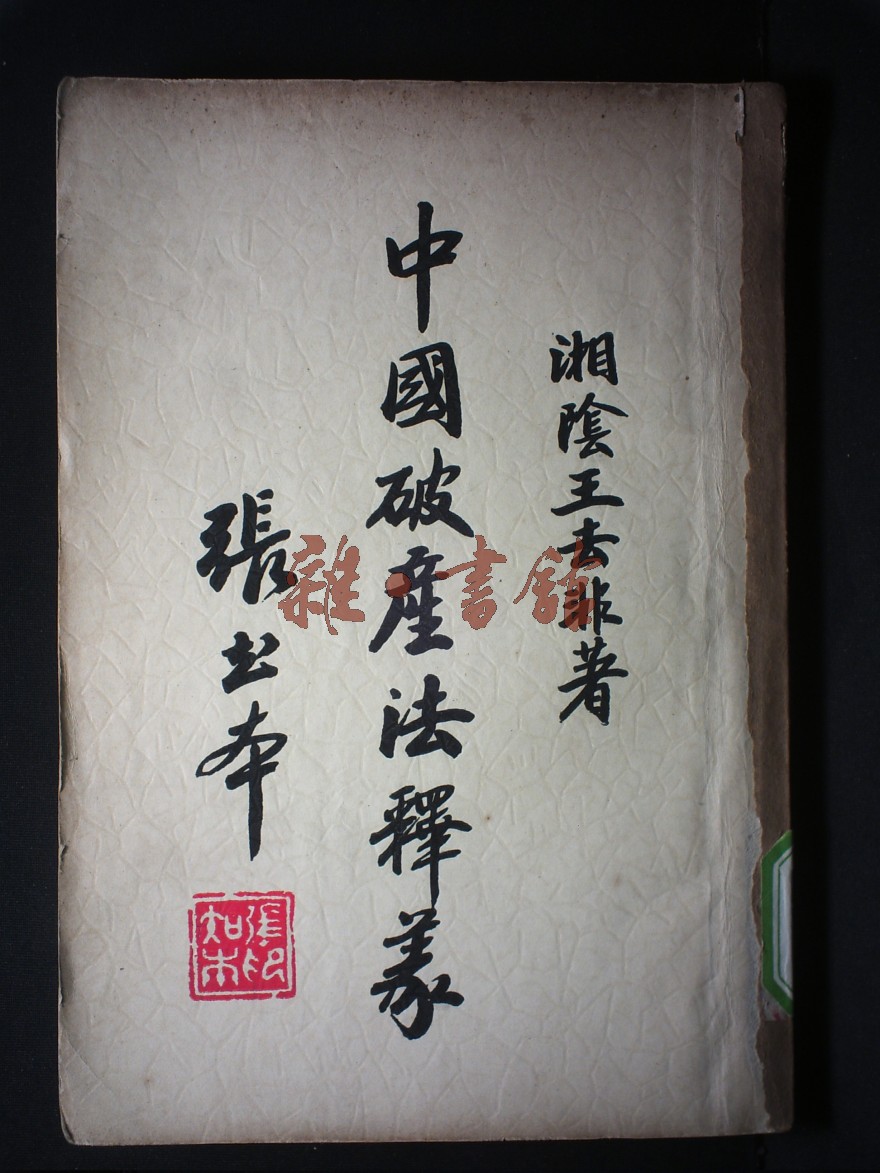 湘陰王去非著
中國破産法釋義
張知本
張印
知本
雜·書館